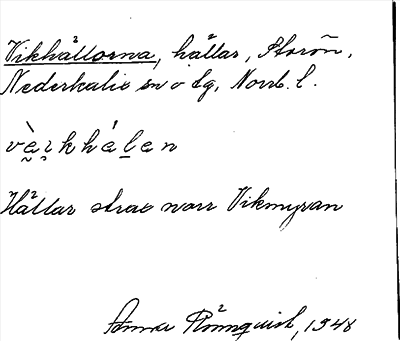 Vikhällorna, hällar, Storön,
Nederkalix sn o tg, Norrb. l.
vè̬i̬khálen
Hällar strax norr Vikmyran
Rönnquist, 1948